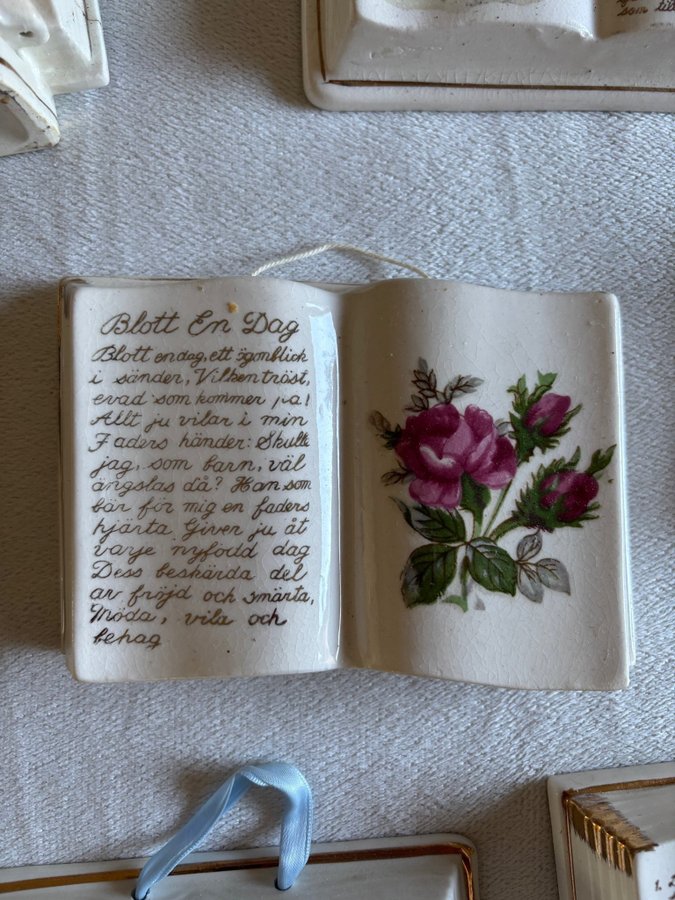 som til
Blott En Dag
Blott en dag, ett ögonblick
i sänder, Vilken tröst,
evad som kommer på!
Allt ju vilar i min
Faders händer: Skulle
jag, som barn, väl
ängslas då? Han som
bär för mig en faders
hjärta Giver ju åt
varje nyfödd dag
Dess beskärda del
av fröjd och smärta,
Möda, vila och
behag
1.